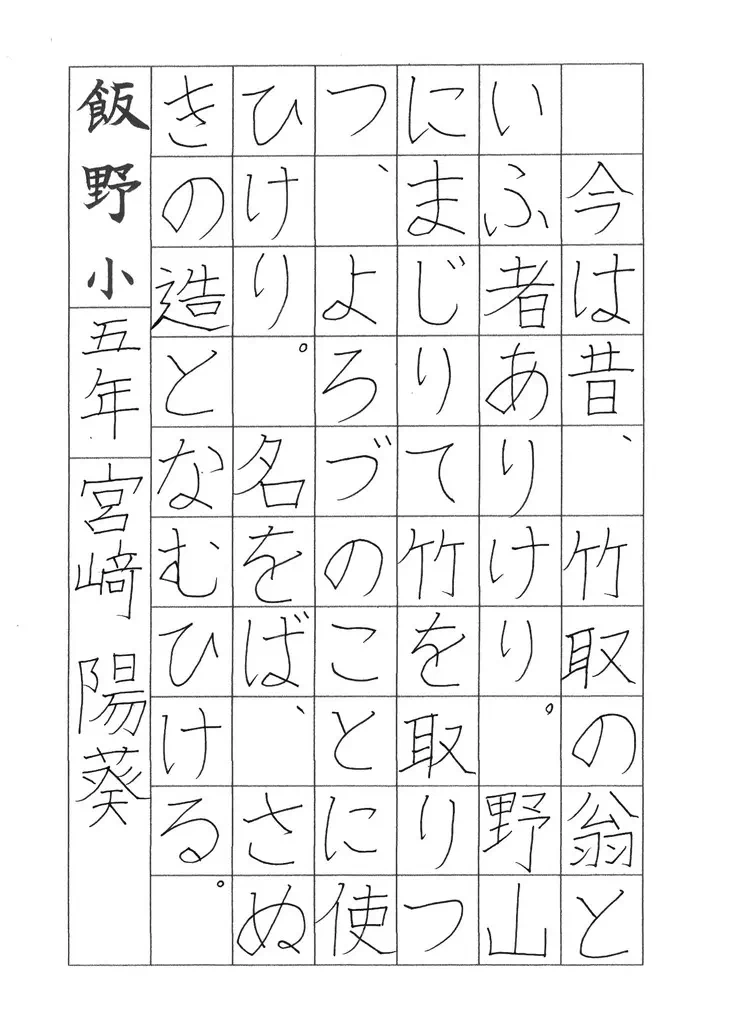 今は昔、竹取の翁と
いふ者ありけり。野山
にまじりて竹を取りつ
つ、よろづのことに使
ひけり。名をば、さぬ
きの造となむひける。
飯野小 五年 宮﨑 陽葵